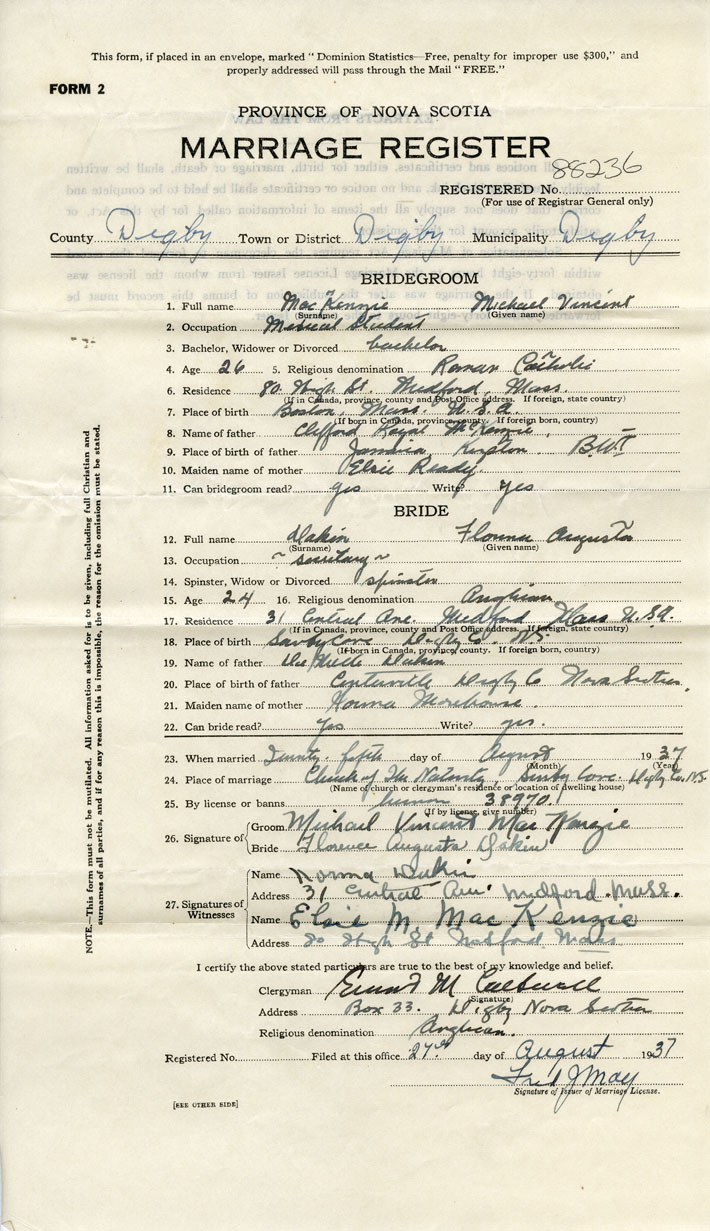 This form, if placed in an envelope, marked "Dominion Statistics—Free, penalty for improper use $300," and
properly addressed will pass through the Mail "FREE."
FORM 2
PROVINCE OF NOVA SCOTIA
MARRIAGE REGISTER
88236
REGISTERED No.
(For use of Registrar General only)
County Digby Town or District Digby Municipality Digby
BRIDEGROOM
1. Full name MacKenzie Michael Vincent
(Surname) (Given name)
2. Occupation Medical Student
3. Bachelor, Widower or Divorced bachelor
4. Age 26 5. Religious denomination Roman Catholic
6. Residence 80 High St. Medford, Mass.
(If in Canada, province, county and Post Office address. If foreign, state country)
7. Place of birth Boston, Mass. U.S.A.
(If born in Canada, province, county. If foreign born, country)
8. Name of father Clifford Royal McKenzie
9. Place of birth of father Jamaica, Kingston B.W.I
10. Maiden name of mother Elsie Ready
11. Can bridegroom read? yes Write? yes
BRIDE
12. Full name Dakin Florence Augusta
(Surname) (Given name)
13. Occupation ~ secretary ~
14. Spinster, Widow or Divorced spinster
15. Age 24 16. Religious denomination Anglican
17. Residence 31 Central Ave. Medford Mass U.S.A.
(If in Canada, province, county and Post Office address. If foreign, state country)
18. Place of birth Sandy Cove Digby Co. N.S.
(If born in Canada, province, county. If foreign born, country)
19. Name of father Dakin
20. Place of birth of father Centreville Digby Co Nova Scotia.
21. Maiden name of mother Norma Morehouse
22. Can bride read? Yes Write? yes.
23. When married Twenty-fifth day of August 1937
(Month) (Year)
24. Place of marriage Church of The Nativity, Sandy Cove. Digby Co. N.S.
(Name of church or clergyman's residence or location of dwelling house)
25. By license or banns license 38970
(If by license, give number)
26. Signature of
Groom Michael Vincent MacKenzie
Bride Florence Augusta Dakin
27. Signatures of Witnesses
Name Norma Dakin
Address 31 Central Ave. Medford Mass.
Name Elsie M. MacKenzie
Address 80 High St Medford Mass
I certify the above stated particulars are true to the best of my knowledge and belief.
Clergyman Ernest M
(Signature)
Address Box 33. Digby Nova Scotia
Religious denomination Anglican.
Registered No. Filed at this office 27th day of August 1937
Fred J May
Signature of Issuer of Marriage License.
[SEE OTHER SIDE]
NOTE.—This form must not be mutilated. All information asked for is to be given, including full Christian and
surnames of all parties, and if for any reason this is impossible, the reason for the omission must be stated.